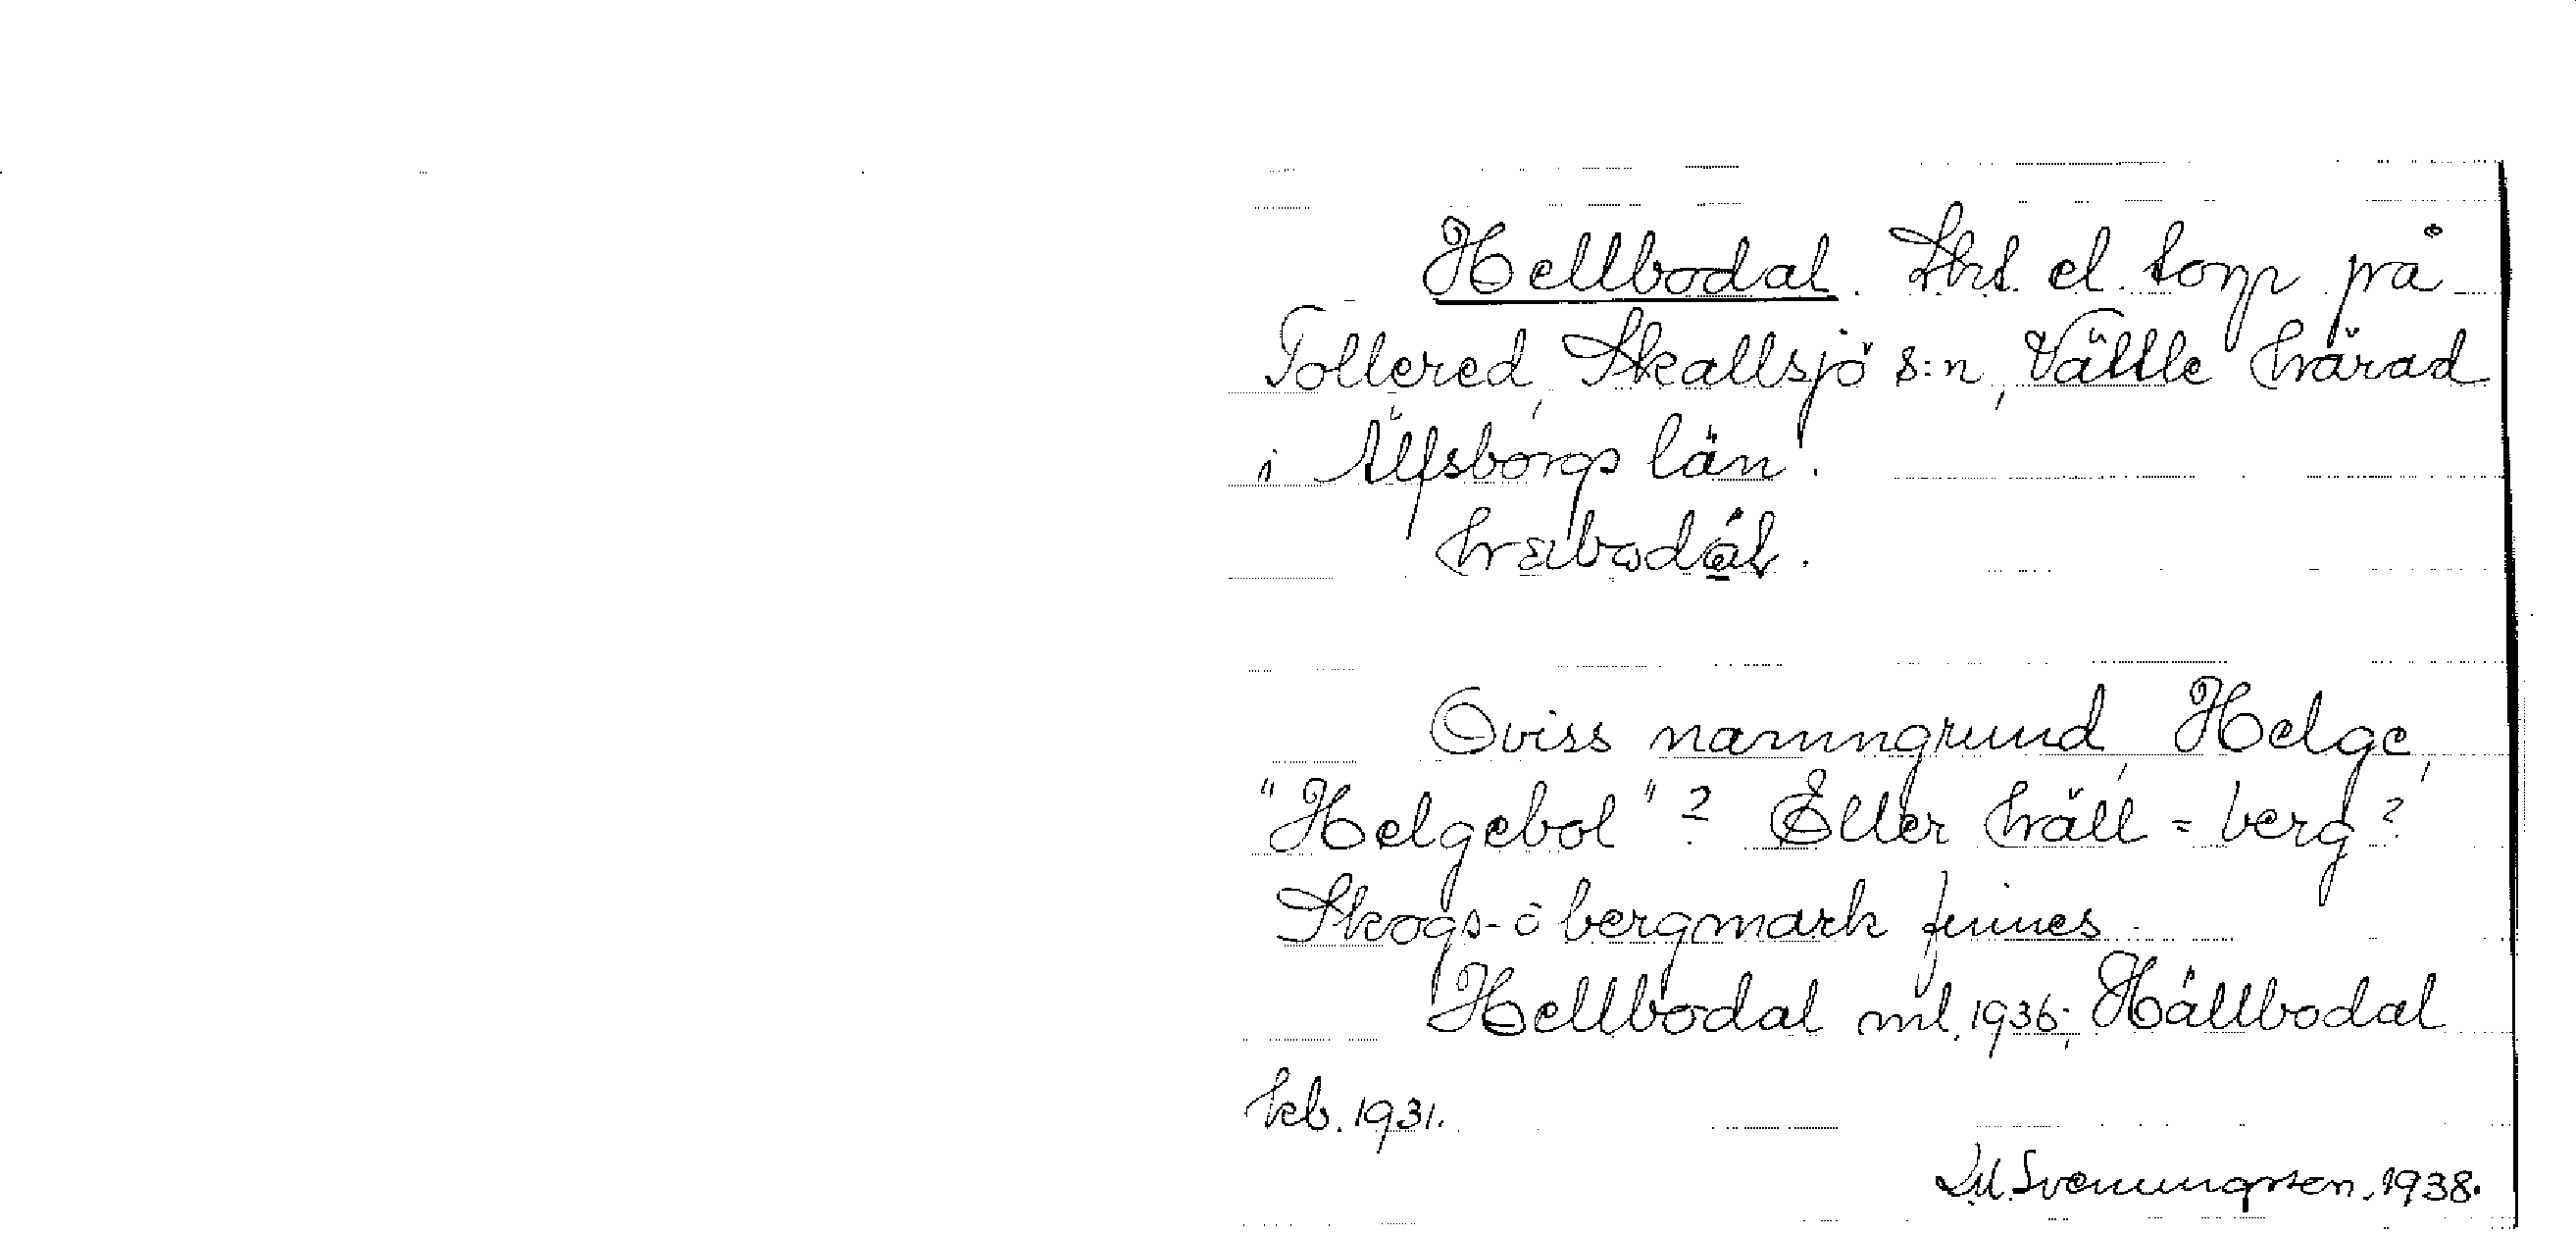 Hellbodal. Skt. el. torp på
Tollered, Skallsjö s:n, Vättle härad
i Älfsborgs län.
hɛbodál.
Oviss namngrund, Helge,
"Helgebol"? Eller häll = berg?
Skogs- o bergmark finnes.
Hellbodal ml. 1936; Hällbodal
kb. 1931.
Svenungsson. 1938.